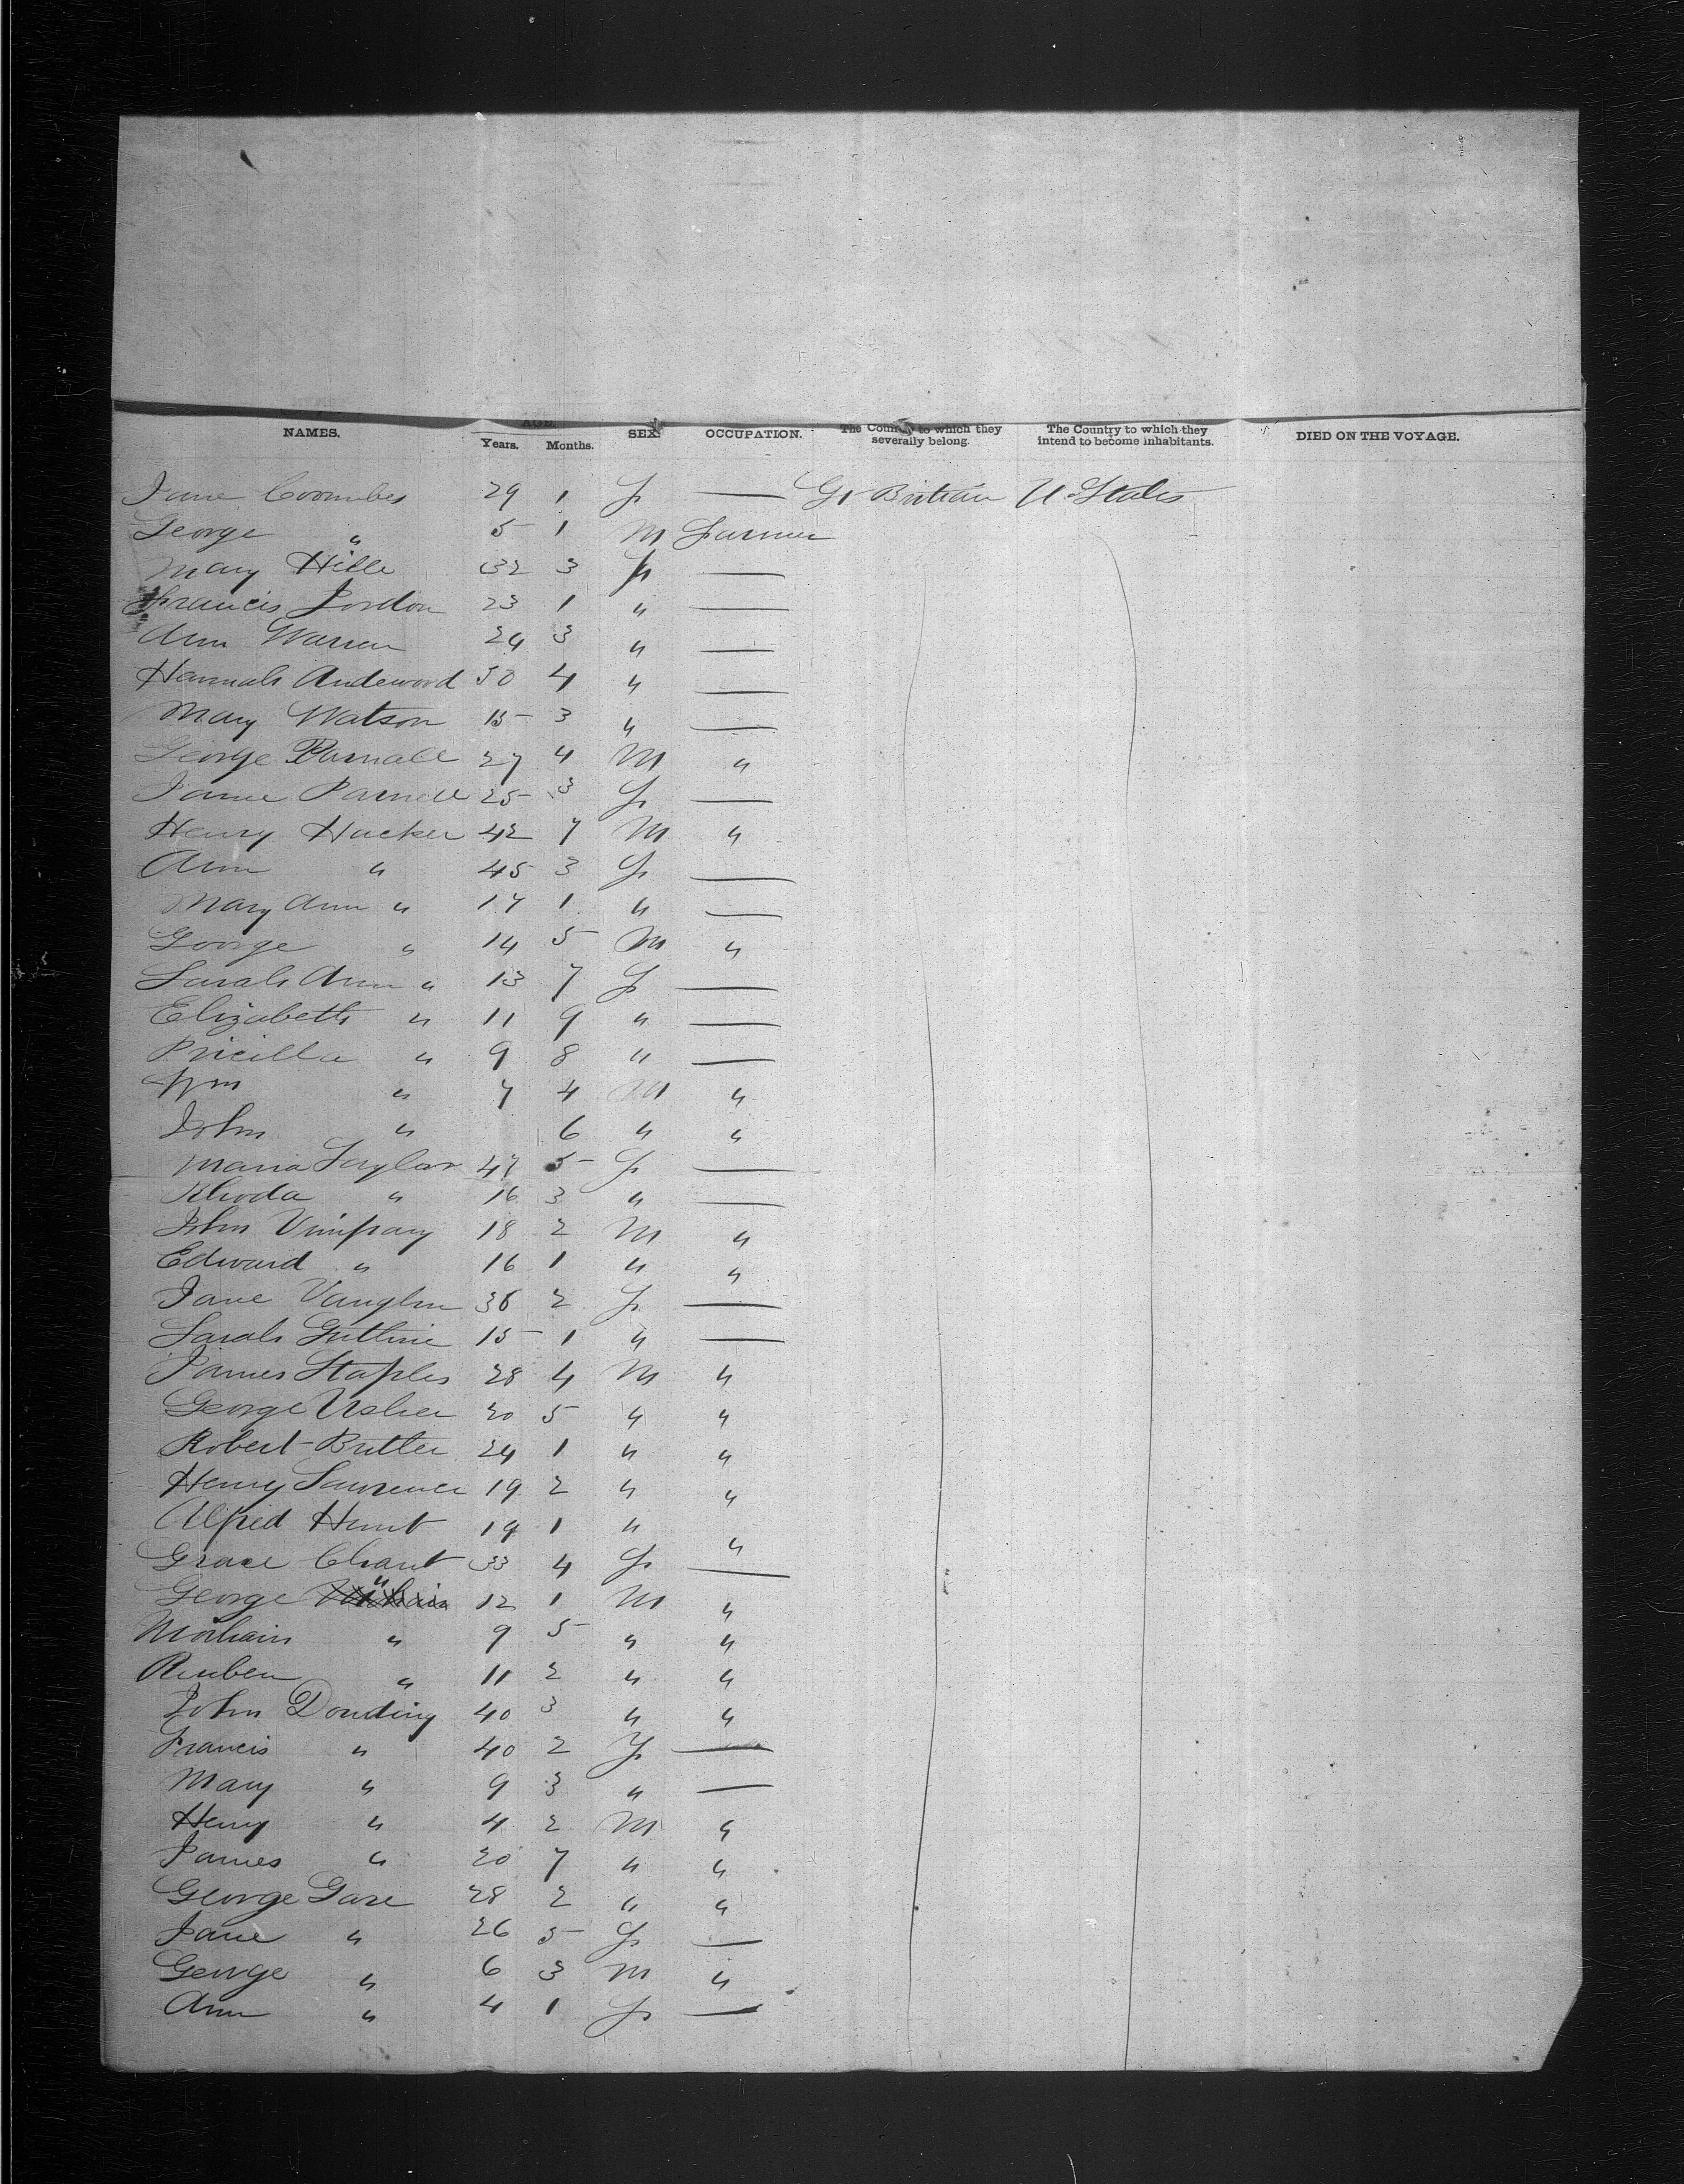 NAMES. AGE. Years. Months. SEX. OCCUPATION. The Country to which they severally belong. The Country to which they intend to become inhabitants. DIED ON THE VOYAGE.
Jane Coombes 29 1 F — Gt Britain U States
George " 5 1 M Farmer
Mary Hille 32 3 F —
Francis Jordon 23 1 " —
Ann Warren 24 3 " —
Hannah Andewood 50 4 " —
Mary Watson 15 3 " —
George Parnall 27 4 M "
Jane Parnell 25 3 F —
Henry Hucker 42 7 M "
Ann " 45 3 F —
Mary Ann " 17 1 " —
George " 14 5 M "
Sarah Ann " 13 7 F —
Elizabeth " 11 9 " —
Pricilla " 9 8 " —
Wm " 7 4 M "
John " 6 " "
Maria Taylor 47 5 F —
Rhoda " 16 3 " —
John Vimpany 18 2 M "
Edward " 16 1 " "
Jane Vaughn 36 2 F —
Sarah Guthrie 15 1 " —
James Staples 28 4 M "
George Usher 20 5 " "
Robert Butler 24 1 " "
Henry Lawrence 19 2 " "
Alfred Hunt 19 1 " "
Grace Chant 33 4 F —
George " 12 1 M "
" 9 5 " "
Reuben " 11 2 " "
John Douding 40 3 " "
Francis " 40 2 F —
Mary " 9 3 " —
Henry " 4 2 M "
James " 20 7 " "
George Gare 28 2 " "
Jane " 26 5 F —
George " 6 3 M "
Ann " 4 1 F —